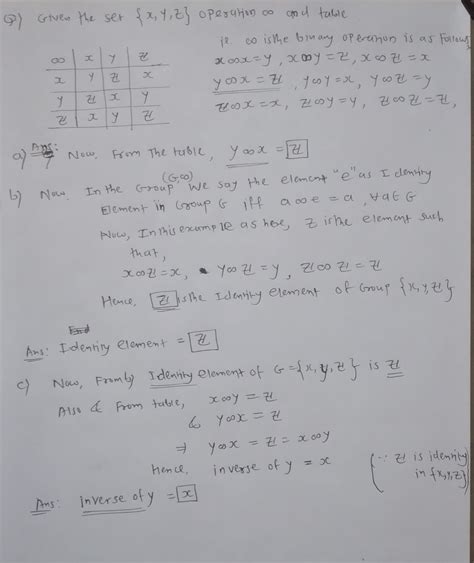 Q) Given the set {x, y, z} operation ∞ and table
i.e. ∞ is the binary operation is as follows
∞ | x | y | z
x | y | z | x
y | z | x | y
z | x | y | z
x∞x = y, x∞y = z, x∞z = x
y∞x = z, y∞y = x, y∞z = y
z∞x = x, z∞y = y, z∞z = z,
Ans:
a) Now, From the table, y∞x = z
b) Now. In the Group (G,∞) We say the element "e" as Identity
Element in Group G iff a∞e = a, ∀a∈G
Now, In this example as here, z is the element such
that,
x∞z = x, y∞z = y, z∞z = z
Hence, z is the Identity element of Group {x,y,z}
Ans: Identity element = z
c) Now, From b) Identity element of G = {x, y, z} is z
Also & From table, x∞y = z
& y∞x = z
⇒ y∞x = z = x∞y
Hence, inverse of y = x
(∵ z is identity
in {x,y,z})
Ans: inverse of y = x